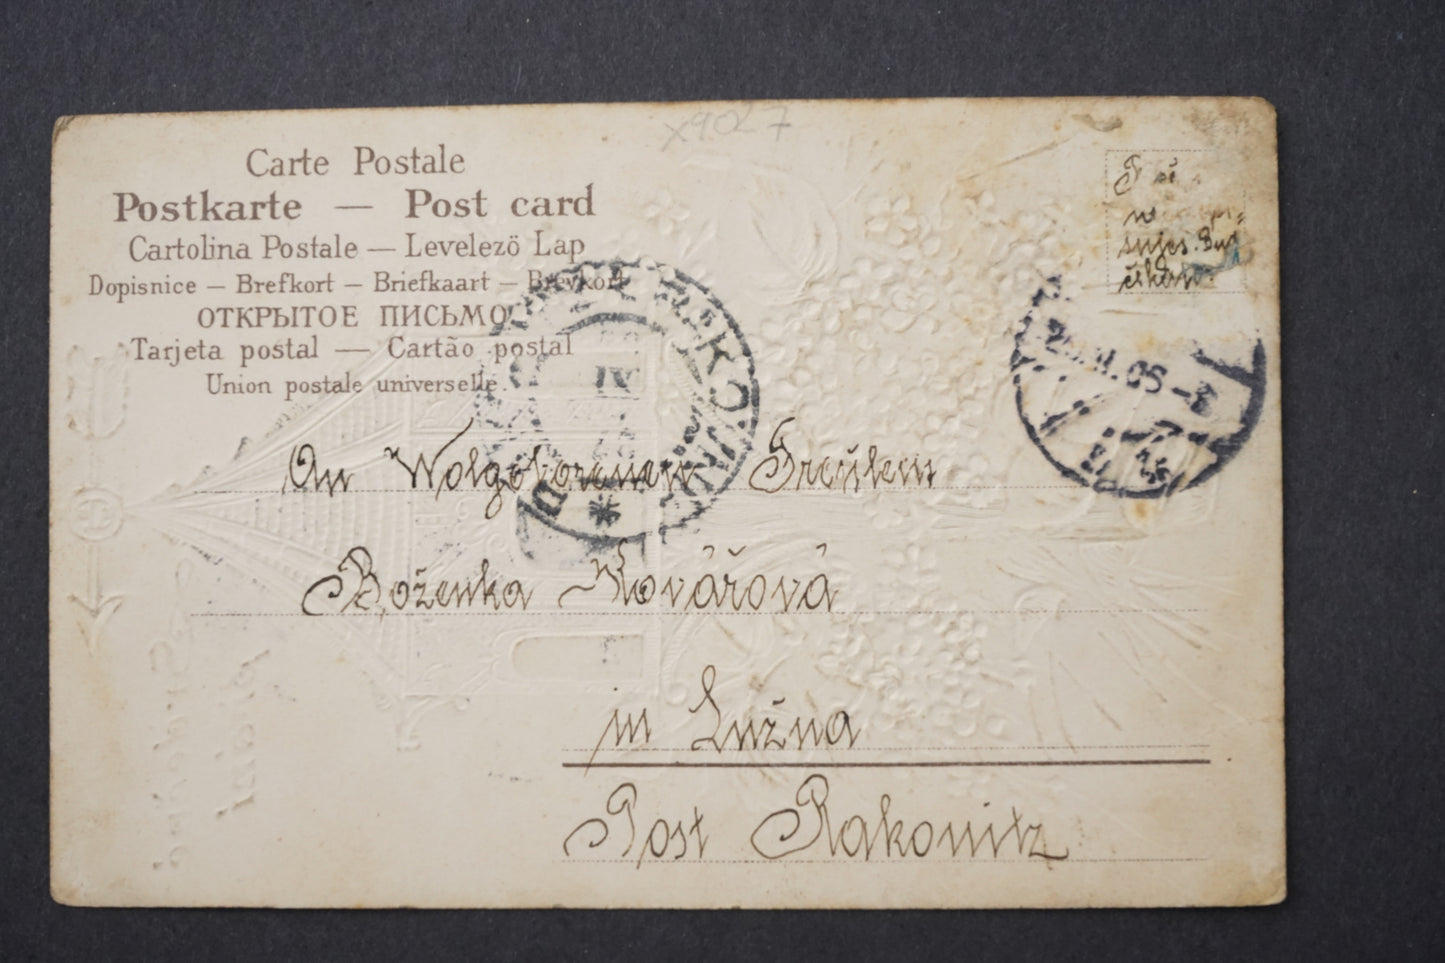 x9027
Carte Postale
Postkarte — Post card
Cartolina Postale — Levelező Lap
Dopisnice — Brefkort — Briefkaart — Brevkort
ОТКРЫТОЕ ПИСЬМО
Tarjeta postal — Cartão postal
Union postale universelle.
RAKOVN
06
An Wolgeborenen Freulein
Boženka Kovářová
in Lužna
Post Rakonitz